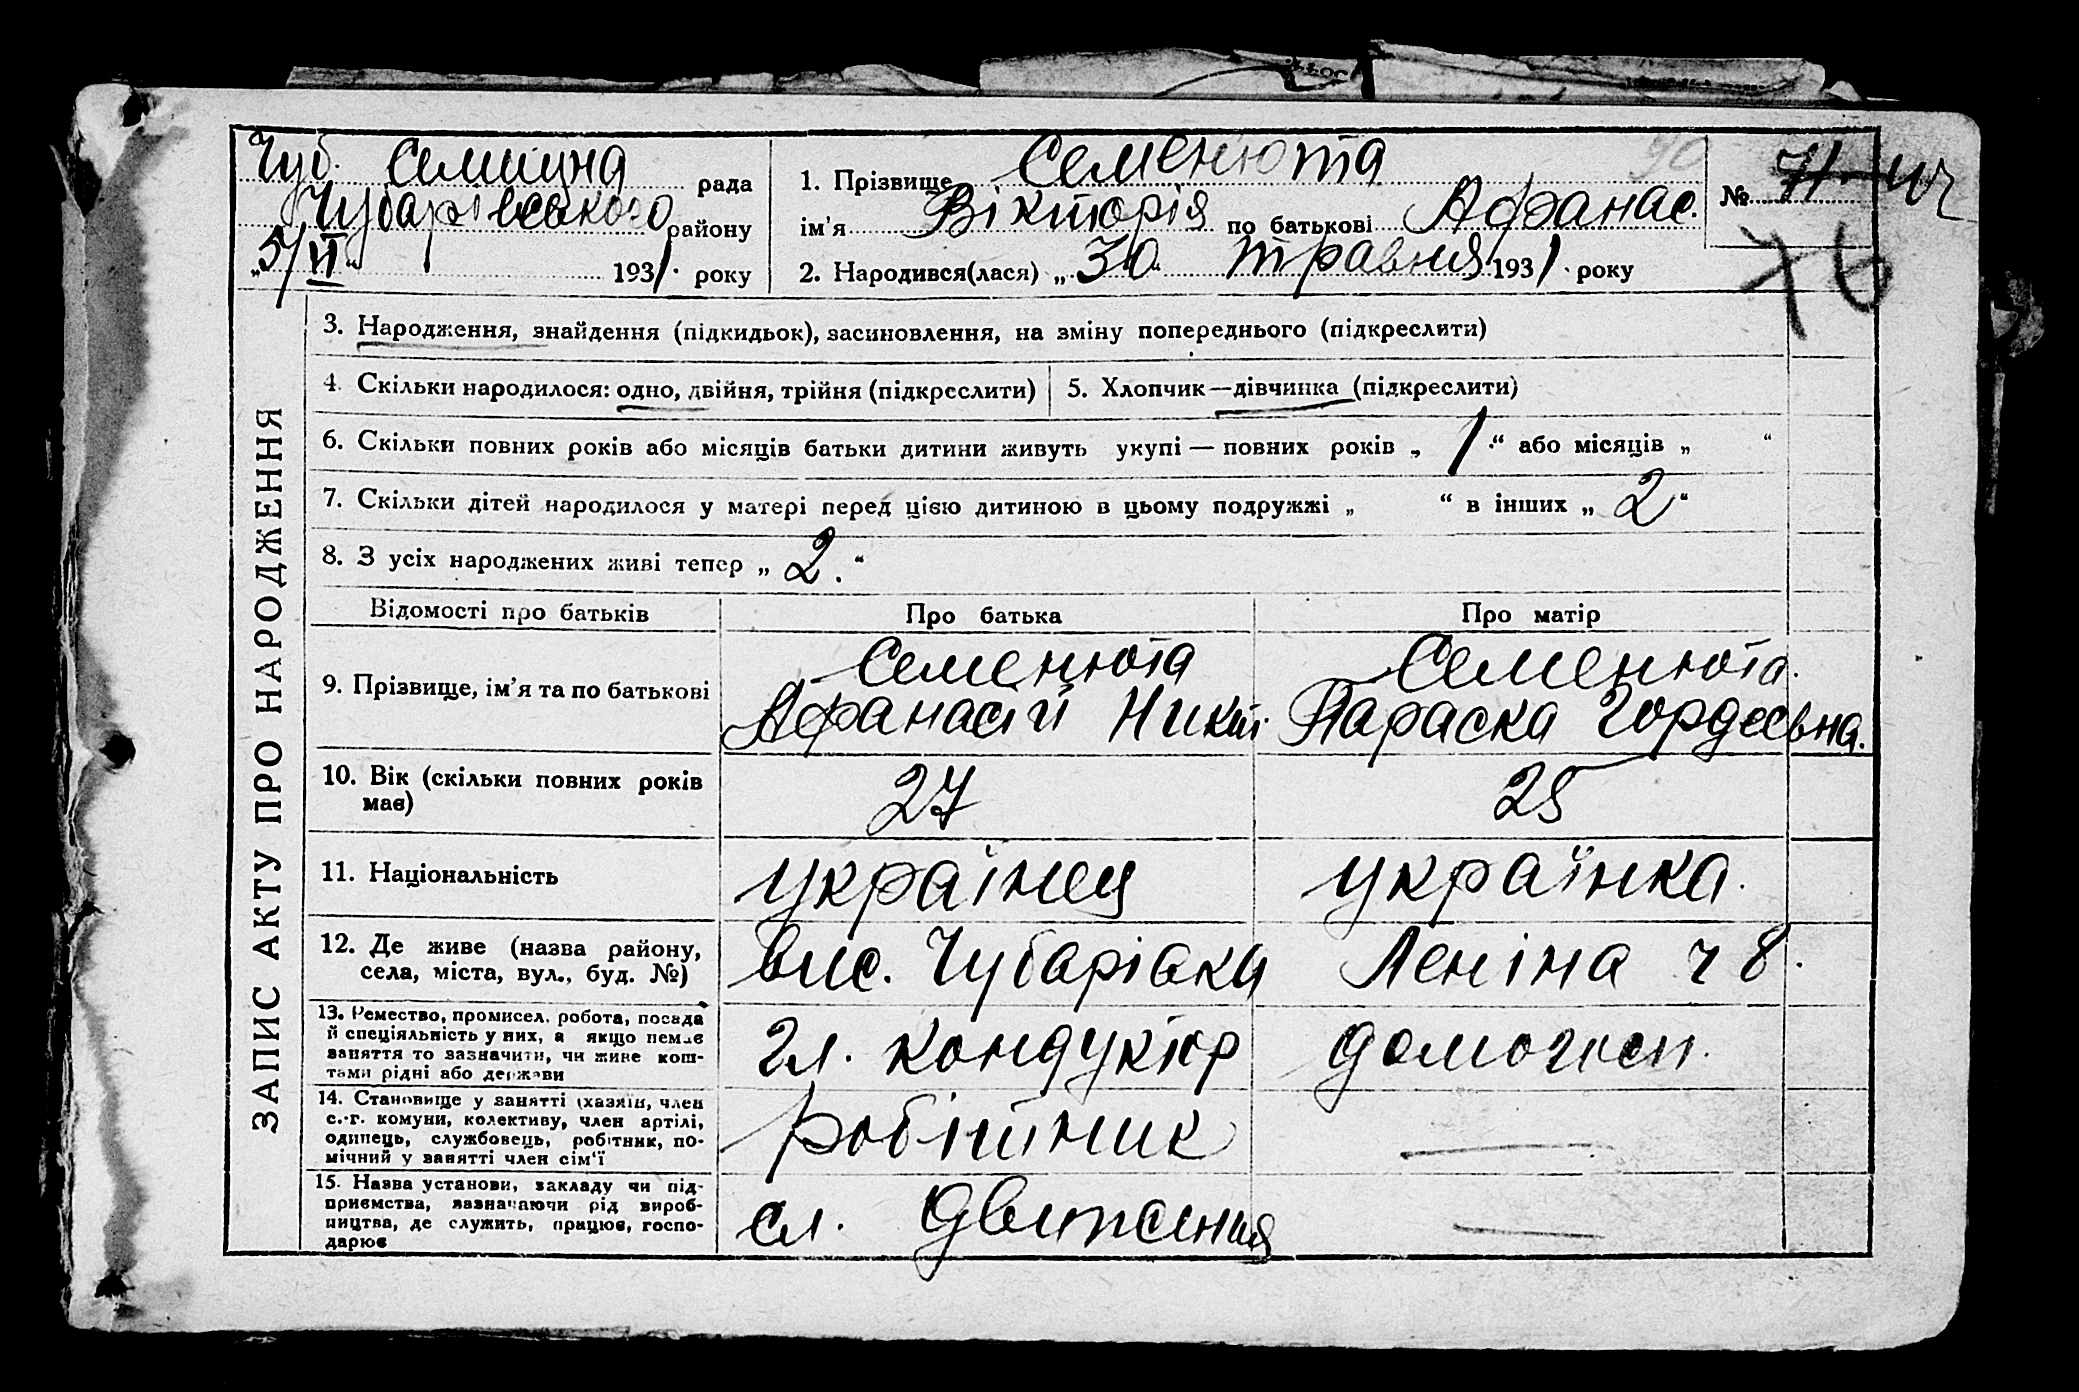 Чуб. Семищна рада
Чубарівського району
„5/VI“ 1931. року
1. Прізвище Семенюта
ім’я Вікторія по батькові Афанас.
2. Народився(лася) „30“ травня 1931. року
40
№ 71
76
ЗАПИС АКТУ ПРО НАРОДЖЕННЯ
3. Народження, знайдення (підкидьок), засиновлення, на зміну попереднього (підкреслити)
4. Скільки народилося: одно, двійня, трійня (підкреслити)
5. Хлопчик—дівчинка (підкреслити)
6. Скільки повних років або місяців батьки дитини живуть укупі — повних років „1“ або місяців „ “
7. Скільки дітей народилося у матері перед цією дитиною в цьому подружжі „ “ в інших „2“
8. З усіх народжених живі тепер „2.“
Відомості про батьків Про батька Про матір
9. Прізвище, ім’я та по батькові
Семенюта
Афанасій Никит.
Семенюта.
Параска Гордеевна.
10. Вік (скільки повних років
має)
27
25
11. Національність
українец
українка.
12. Де живе (назва району,
села, міста, вул., буд. №)
вис. Чубарівка Леніна ч 8.
13. Ремество, промисел, робота, посада
й спеціяльність у них, а якщо немає
заняття то зазначити, чи живе кош-
тами рідні або держави
гл. кондуктор
домогосп.
14. Становище у занятті (хазяїн, член
с.-г. комуни, колективу, член артілі,
одинець, службовець, робітник, по-
мічний у занятті член сім’ї
робітник
15. Назва установи, закладу чи під-
приємства, зазначаючи рід вироб-
ництва, де служить, працює, госпо-
дарює
сл. движения